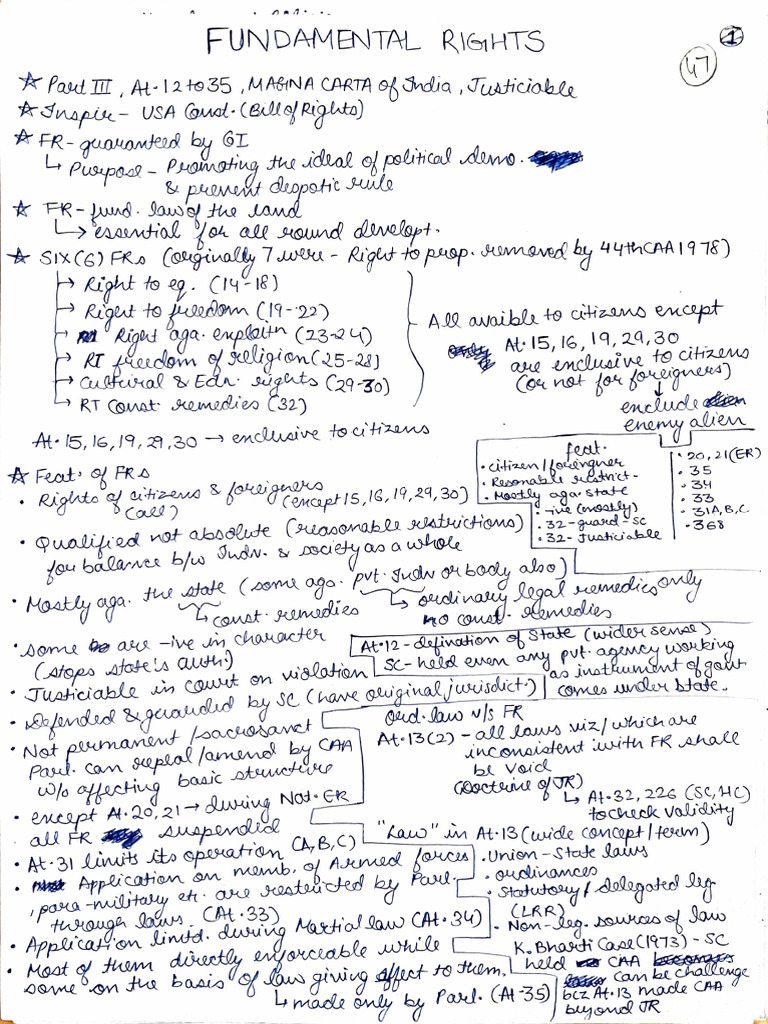 FUNDAMENTAL RIGHTS
1
47
☆ Part III, At. 12 to 35, MAGNA CARTA of India, Justiciable
☆ Inspire - USA Const. (Bill of Rights)
☆ FR - guaranteed by GI
↳ Purpose - Promoting the ideal of political demo.
& prevent despotic rule
☆ FR - fund. law of the land
↳ essential for all round developt.
☆ SIX (6) FRs (orginally 7 were - Right to prop. removed by 44th CAA 1978)
→ Right to eq. (14-18)
→ Right to freedom (19-22)
→ Right aga. exploitn (23-24)
→ RT freedom of religion (25-28)
→ Cultural & Edn. rights (29-30)
→ RT Const. remedies (32)
All avaible to citizens except
At. 15, 16, 19, 29, 30
are exclusive to citizens
(or not for foreigners)
↓
exclude
enemy alien
At. 15, 16, 19, 29, 30 → exclusive to citizens
☆ Feat. of FRs
• Rights of citizens & foreigners
(all) (except 15, 16, 19, 29, 30)
• Qualified not absolute (reasonable restrictions)
for balance b/w Indv. & society as a whole
• Mostly aga. the state (some aga. pvt. Indv or body also)
↳ const. remedies
↳ ordinary legal remedies only
no const. remedies
• some are -ive in character
(stops state's auth.)
• Justiciable in court on violation
• Defended & guarded by SC (have original jurisdict.)
• Not permanent / sacrosanct
Parl. can repeal/amend by CAA
w/o affecting basic structure
• except At. 20, 21 → during Nat. ER
all FR suspended
• At. 31 limits its operation (A, B, C)
• Application on memb. of Armed forces
para-military etc. are restricted by Parl.
through laws. (At. 33)
• Application limitd. during Martial law (At. 34)
• Most of them directly enforceable while
some on the basis of law giving effect to them.
↳ made only by Parl. (At. 35)
feat.
• citizen/foreingner
• Resonable restrict.
• Mostly aga. state
• -ive (mostly)
• 32 - guard - SC
• 32 - Justiciable
• 20, 21 (ER)
• 35
• 34
• 33
• 31A, B, C
• 368
At. 12 - defination of State (wider sense)
SC - held even any pvt. agency working
as instrument of govt
comes under State.
Ord. law v/s FR
At. 13(2) - all laws viz/which are
inconsistent with FR shall
be void
(Doctrine of JR)
↳ At. 32, 226 (SC, HC)
to check validity
"Law" in At. 13 (wide concept/term)
• Union - State laws
• ordinances
• Statutory/delegated leg
(LRR)
• Non-leg. sources of law
K. Bharti Case (1973) - SC
held CAA
can be challenge
bcz At. 13 made CAA
beyond JR